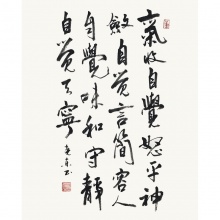 氣收自覺怒平神
斂自觉言簡容人
自覺味和守靜
自觉天寧